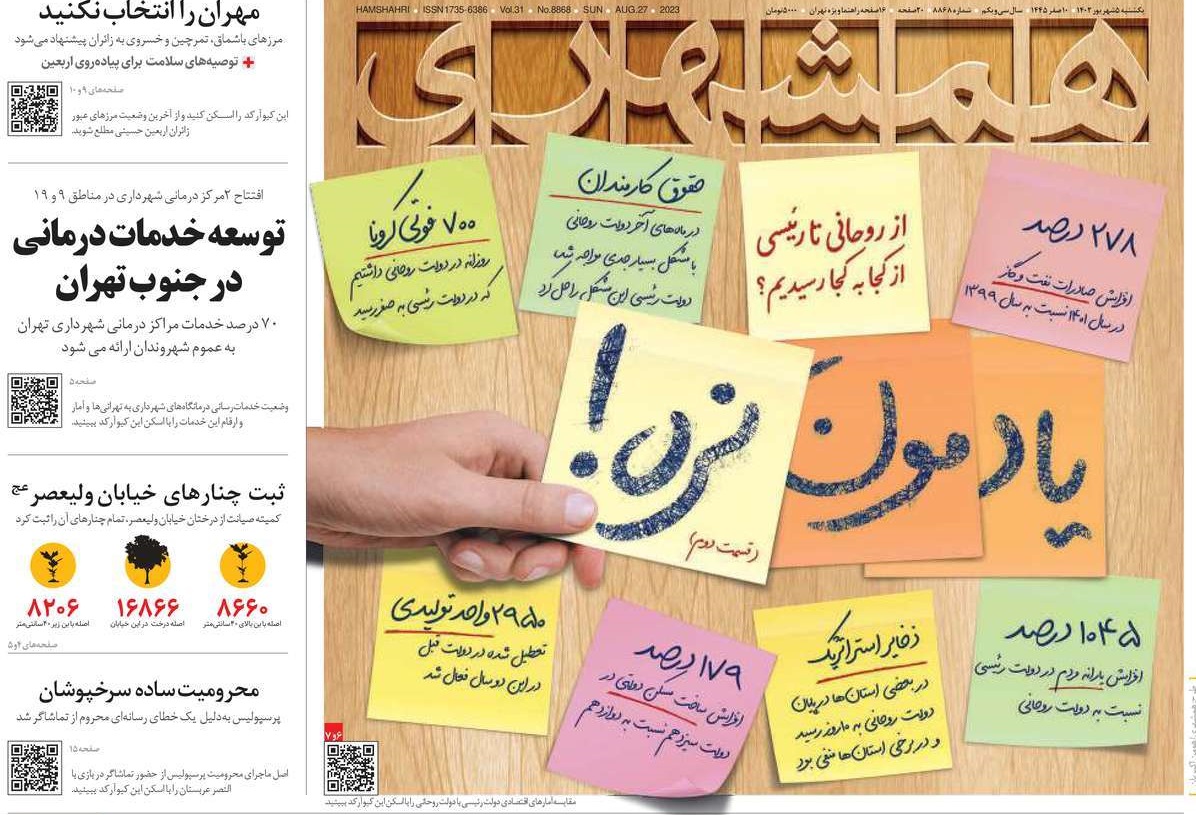 یکشنبه ۵ شهریور ۱۴۰۲ ● ۱۰ صفر ۱۴۴۵ ● سال سی‌ویکم ● شماره ۸۸۶۸ ● ۲۰ صفحه ● ۱۶ صفحه راهنما ویژه تهران ● ۵۰۰۰ تومان
HAMSHAHRI ● ISSN1735-6386 ● Vol.31 ● No.8868 ● SUN ● AUG.27 ● 2023
همشهری
۲۷۸ درصد
افزایش صادرات نفت و گاز
در سال ۱۴۰۱ نسبت به سال ۱۳۹۹
از روحانی تا رئیسی
از کجا به کجا رسیدیم؟
حقوق کارمندان
در ماه‌های آخر دولت روحانی
با مشکل بسیار جدی مواجه شد،
دولت رئیسی این مشکل را حل کرد
۷۰۰ فوتی کرونا
روزانه در دولت روحانی داشتیم
که در دولت رئیسی به صفر رسید
یادمون نره!
(قسمت دوم)
۱۰۴۵ درصد
افزایش یارانه مردم در دولت رئیسی
نسبت به دولت روحانی
ذخایر استراتژیک
در بعضی استان‌ها در پایان
دولت روحانی به ۱۰ روز رسید
و در برخی استان‌ها منفی بود
۱۷۹ درصد
افزایش ساخت مسکن دولتی در
دولت سیزدهم نسبت به دوازدهم
۲۹۵۰ واحد تولیدی
تعطیل شده در دولت قبل
در این دو سال فعال شد
۶و۷
مقایسه آمارهای اقتصادی دولت رئیسی با دولت روحانی را با اسکن این کیوآرکد ببینید.
مهران را انتخاب نکنید
مرزهای باشماق، تمرچین و خسروی به زائران پیشنهاد می‌شود
+ توصیه‌های سلامت برای پیاده‌روی اربعین
صفحه‌های ۹ و ۱۰
این کیوآرکد را اسکن کنید و از آخرین وضعیت مرزهای عبور
زائران اربعین حسینی مطلع شوید.
افتتاح ۲مرکز درمانی شهرداری در مناطق ۹ و ۱۹
توسعه خدمات درمانی
در جنوب تهران
۷۰ درصد خدمات مراکز درمانی شهرداری تهران
به عموم شهروندان ارائه می شود
صفحه ۵
وضعیت خدمات‌رسانی درمانگاه‌های شهرداری به تهرانی‌ها و آمار
و ارقام این خدمات را با اسکن این کیوآرکد ببینید.
ثبت چنارهای خیابان ولیعصر عج
کمیته صیانت از درختان خیابان ولیعصر، تمام چنارهای آن را ثبت کرد
۸۶۶۰
اصله با بن بالای ۴۰ سانتی‌متر
۱۶۸۶۶
اصله درخت در این خیابان
۸۲۰۶
اصله با بن زیر ۴۰ سانتی‌متر
صفحه‌های ۴ و ۵
محرومیت ساده سرخپوشان
پرسپولیس به‌دلیل یک خطای رسانه‌ای محروم از تماشاگر شد
صفحه ۱۵
اصل ماجرای محرومیت پرسپولیس از حضور تماشاگر در بازی با
النصر عربستان را با اسکن این کیوآرکد ببینید.